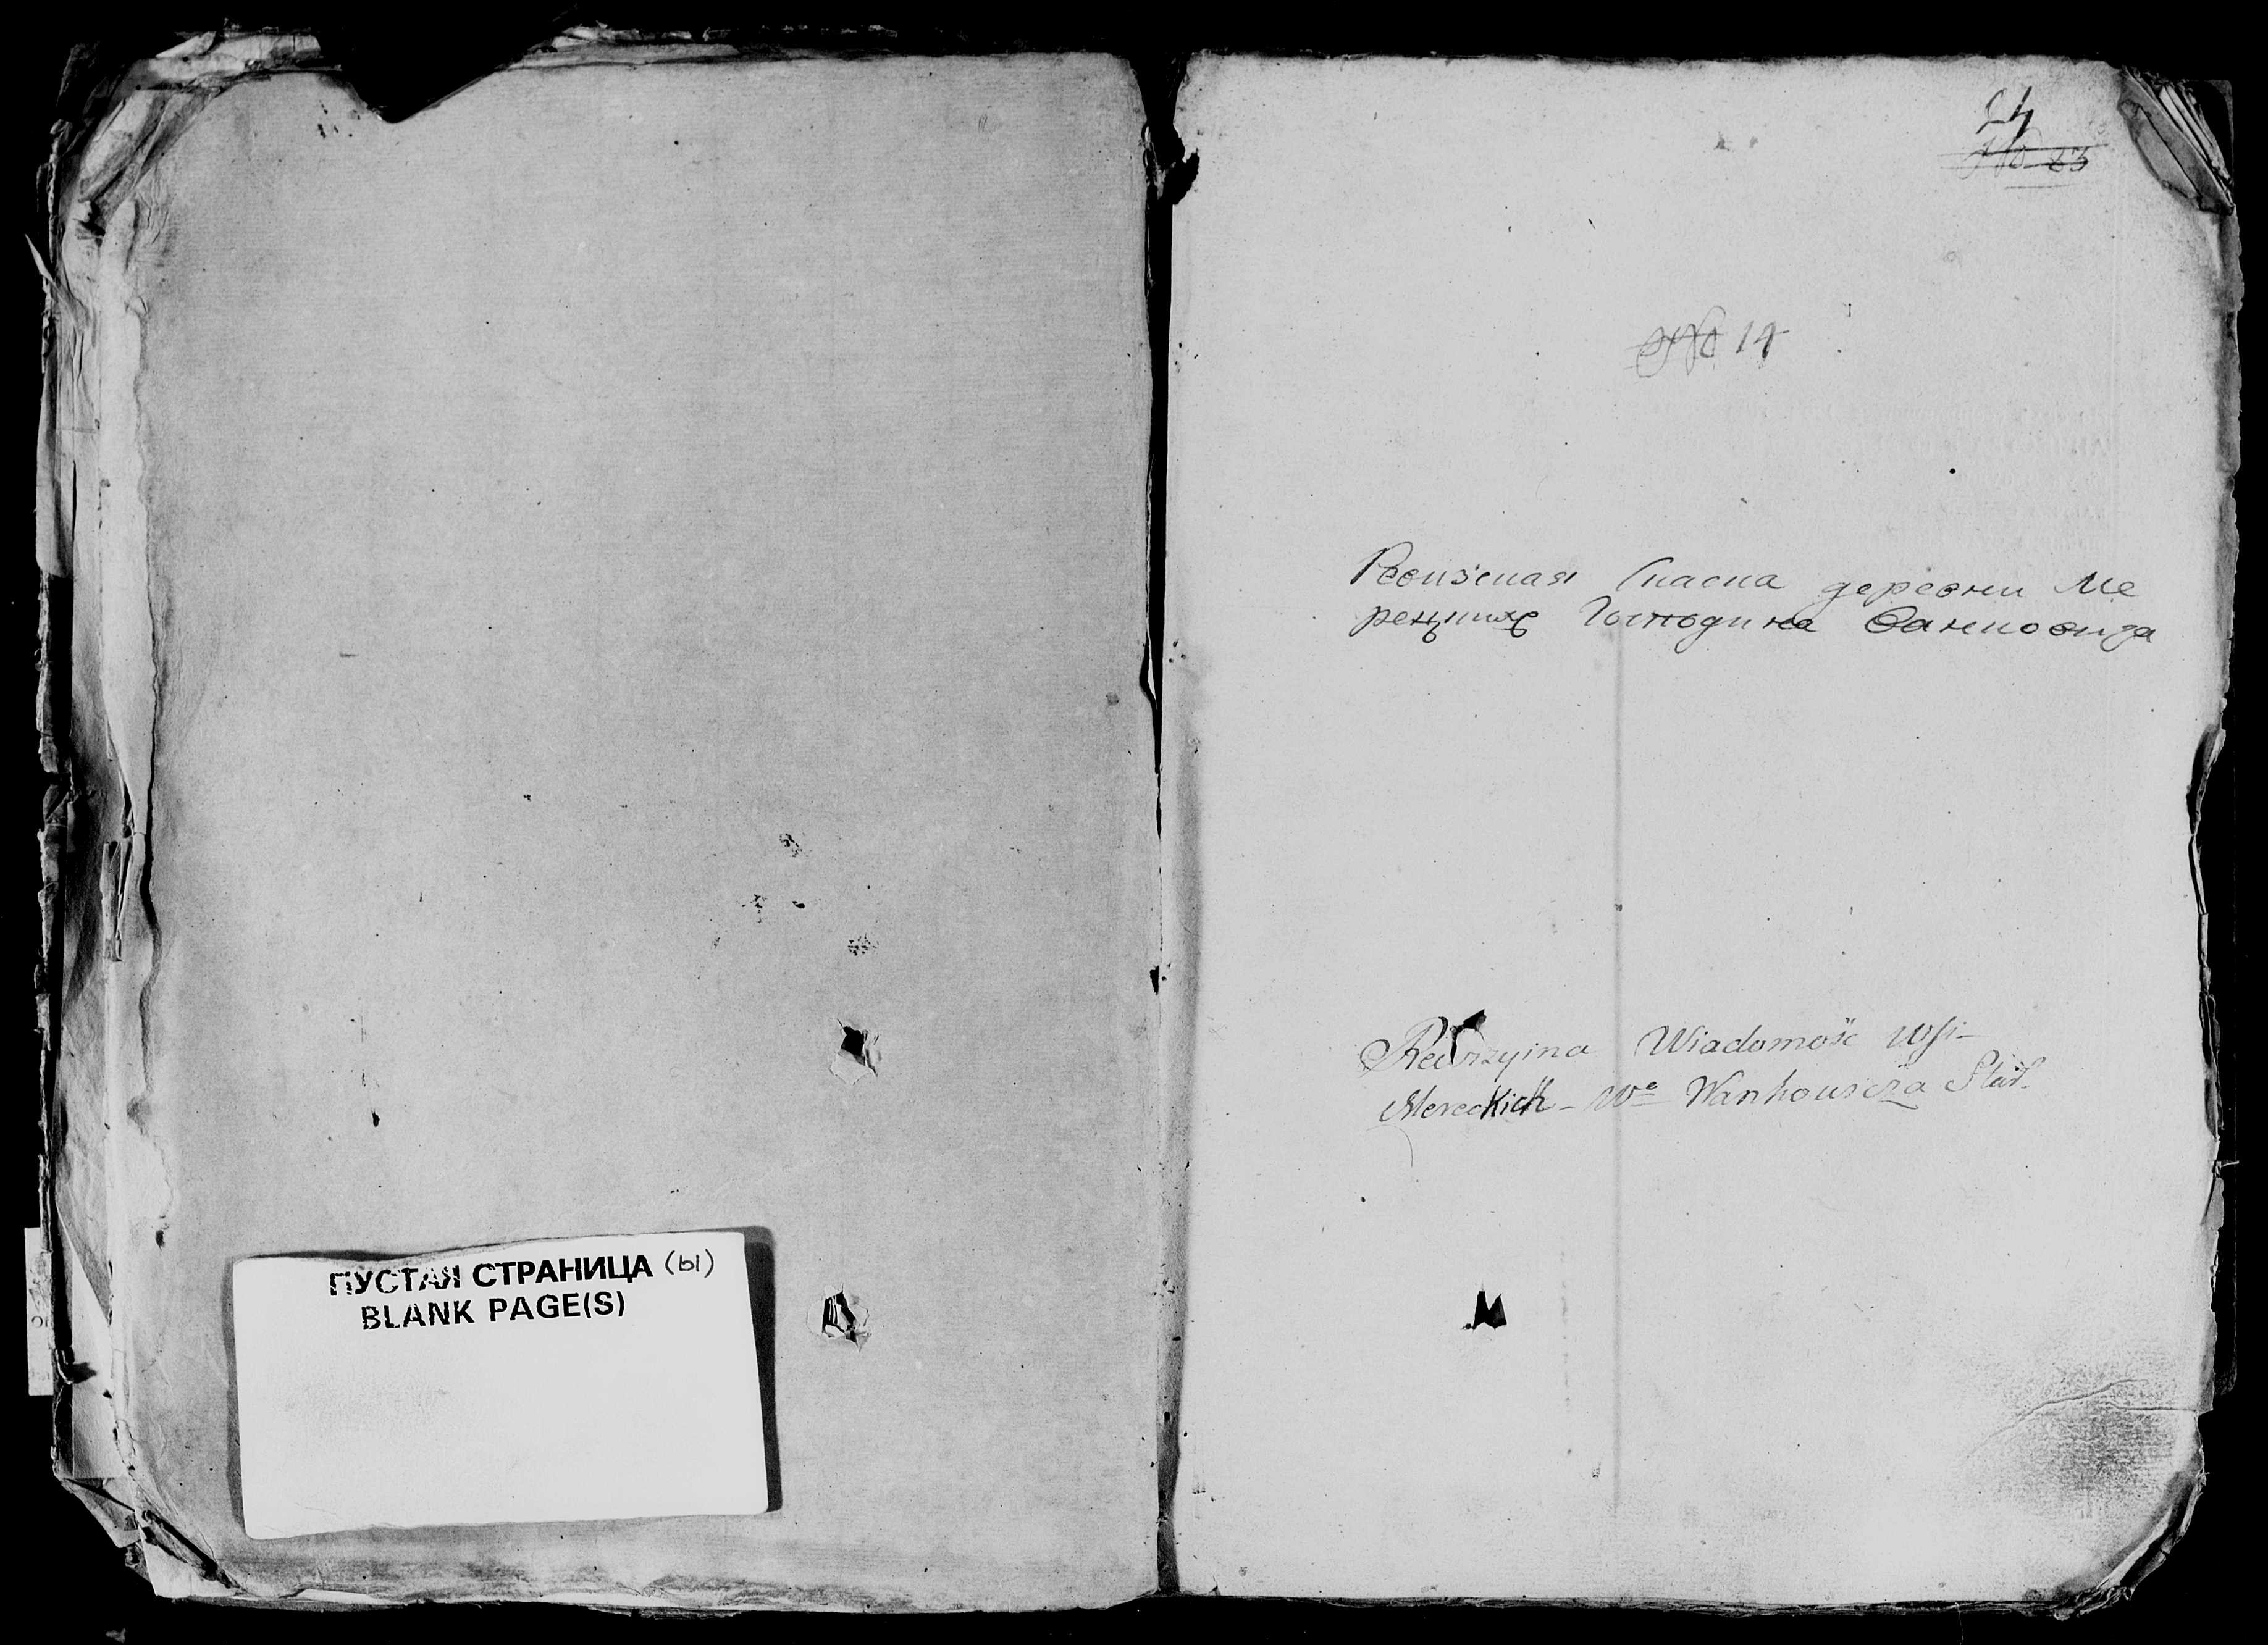 ПУСТАЯ СТРАНИЦА (ы)
BLANK PAGE(S)
24
No 23
No 14
Ревизская Скаска деревни Ме
рецкихъ Господина Ванковича
Rewizyina Wiadomość Wsi
Mereckich Wo Wankowicza Star.